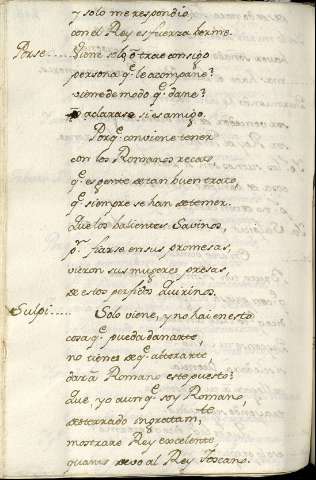 y solo me respondio,
con el Rey es fuerza verme.
Porse..... Viene solo, o trae consigo
persona q.e le acompañe?
viene de modo q.e dañe?
o aclarase si es amigo.
Porq.e conviene tener
con los Romanos recato,
q.e es gente de tan buen trato,
q.e siempre se han de temer.
Que los balientes Savinos,
p.r fiarse en sus promesas,
vieron sus mugeres presas,
de estos perfidos Quirinos.
Sulpi..... Solo viene, y no hai en esto
cosa q.e pueda dañarte,
no tienes de q.e alterarte,
dará Romano este puesto?
Que yo aunq.e soy Romano,
desterrado ingratam.te,
mostrare Rey excelente
quanto devo al Rey Toscano.